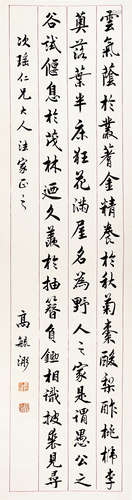 雲氣蔭於叢蓍金精養於秋菊棗酸梨酢桃榹李
薁落葉半床狂花滿屋名為野人之家是謂愚公之
谷試偃息於茂林迺久羨於抽簪負鍤相識披裘見尋
次瑤仁兄大人法家正之
高毓浵